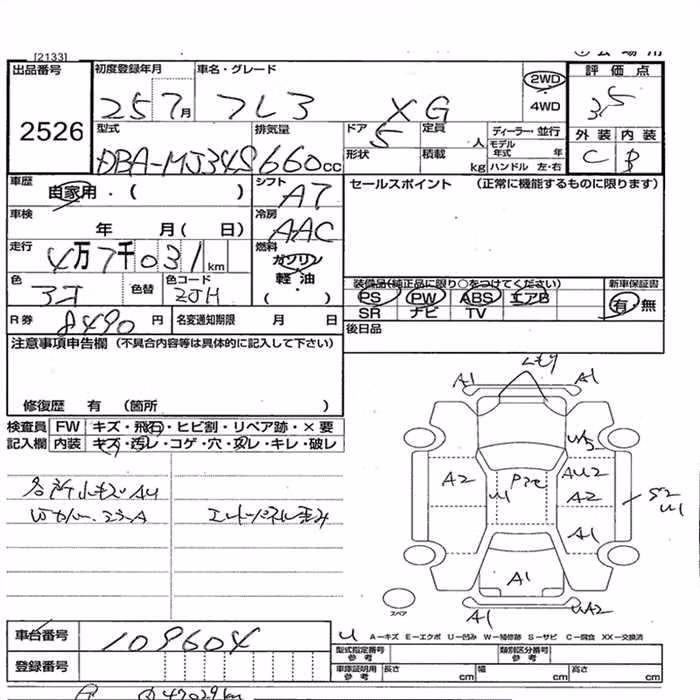 [2133]
出品番号
2526
初度登録年月
25 7月
車名・グレード
フレア XG
2WD
4WD
評価点
3.5
外装 内装
C B
型式
DBA-MJ34S
排気量
660cc
ドア
5
定員
人
形状
積載
kg
ディーラー・並行
モデル年式 年
ハンドル 左・右
車歴
自家用・(
シフト
AT
車検
年 月( 日)
冷房
AAC
走行
4万7千031km
燃料
ガソリン
軽油
( ・ )
色
色替
色コード
ZJH
R券
8490円
名変通知期限 月 日
セールスポイント (正常に機能するものに限ります)
装備品(純正品に限り○をつけてください)
PS PW ABS エアB
SR ナビ TV
新車保証書
有 無
後日品
注意事項申告欄(不具合内容等は具体的に記入して下さい)
修復歴 有 (箇所 )
検査員記入欄
FW キズ・飛石・ヒビ割・リペア跡・×要
内装 キズ・汚レ・コゲ・穴・スレ・キレ・破レ
各所小キズAU
A1 A1
A2
AU2
A2
A1
U1
S2
U1
A1
A1
UA2
スペア
A−キズ E−エクボ U−凹み W−補修跡 S−サビ C−腐食 XX−交換済
車台番号
109604
登録番号
型式指定番号参考
類別区分番号参考
車庫証明用参考
長さ cm
幅 cm
高さ cm
47029km